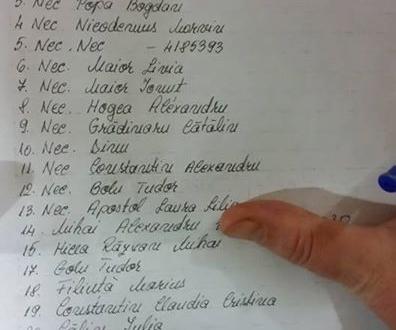 3. Nec Popa Bogdan
4 Nec Nicodemus Marvin
5. Nec. Nec - 4185393
6. Nec. Maior Livia
7. Nec. Maior Ionut
8. Nec. Hogea Alexandru
9. Nec. Grădinaru Cătălin
10. Nec. Dinu
11. Nec Constantin Alexandru
12. Nec. Golu Tudor
13. Nec. Apostol Laura Lilia
14. Mihai Alexandru
15. Răzvan Mihai
17. Golu Tudor
18. Marius
19. Constantin Claudia Cristina
Călin Iulia